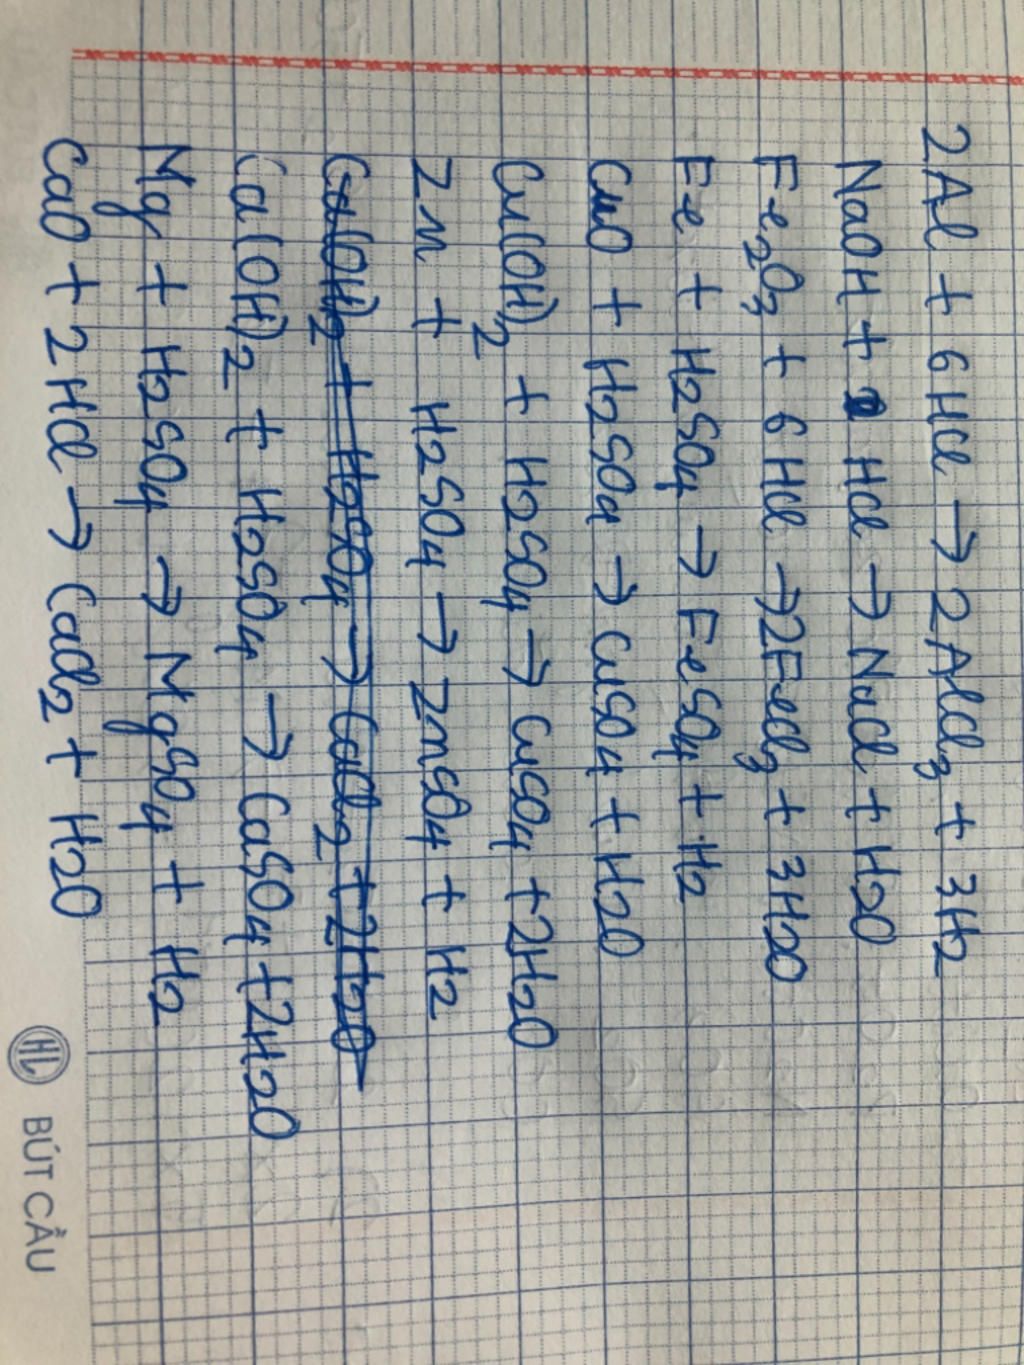 2Al + 6HCl → 2AlCl3 + 3H2
NaOH + HCl → NaCl + H2O
Fe2O3 + 6HCl → 2FeCl3 + 3H2O
Fe + H2SO4 → FeSO4 + H2
CuO + H2SO4 → CuSO4 + H2O
Cu(OH)2 + H2SO4 → CuSO4 + 2H2O
Zn + H2SO4 → ZnSO4 + H2
Ca(OH)2 + H2SO4 → CaCl2 + 2H2O
Ca(OH)2 + H2SO4 → CaSO4 + 2H2O
Mg + H2SO4 → MgSO4 + H2
CaO + 2HCl → CaCl2 + H2O
HL BÚT CẦU